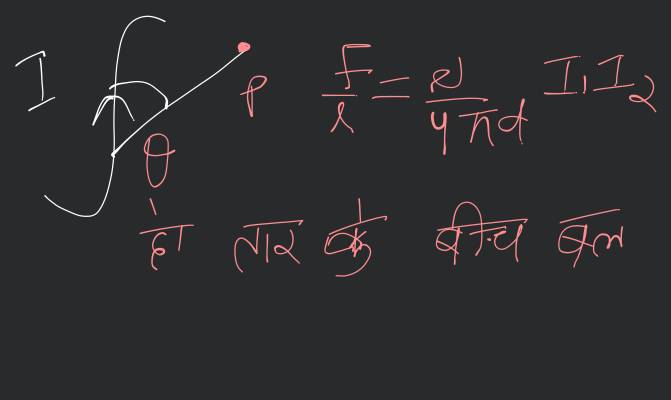 I P F/l = μ/4πd I₁I₂
θ
दो तार के बीच बल